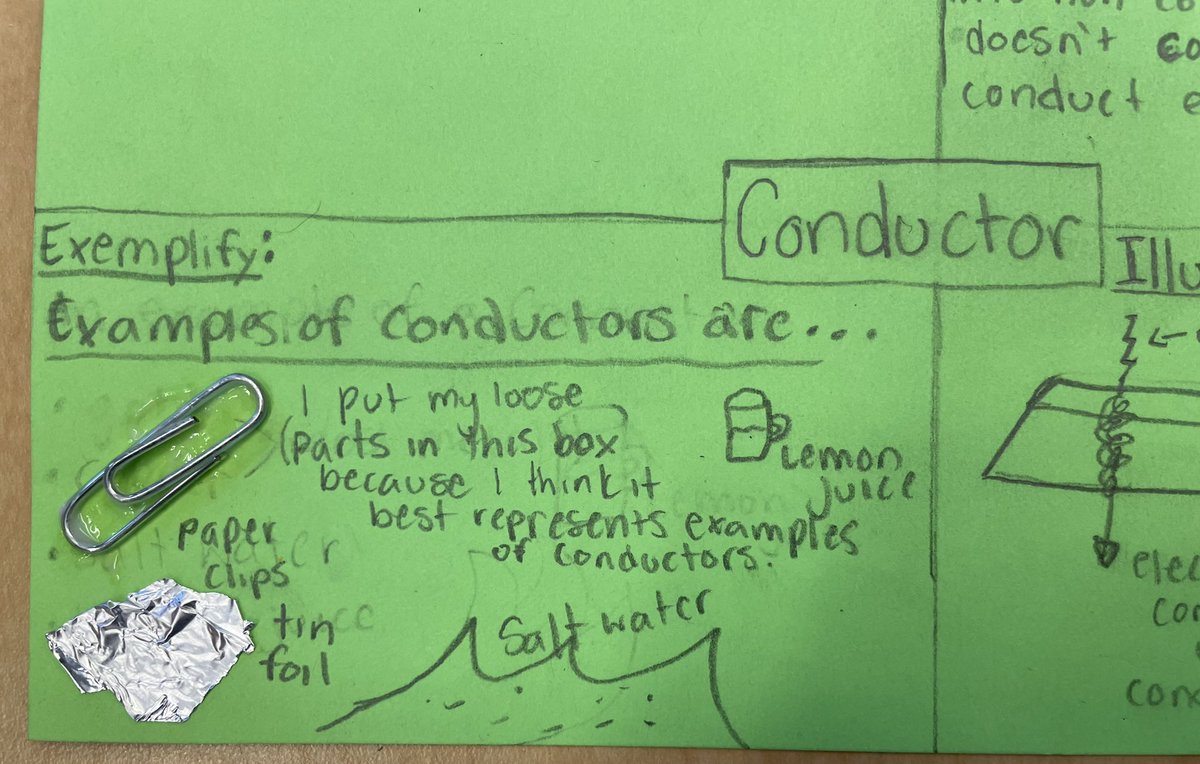 doesn't
conduct
Conductor
Exemplify:
Examples of conductors are...
I put my loose
(parts in this box
because I think it
best represents examples
of conductors.
Lemon
juice
paper
clips
tin
foil
Salt water